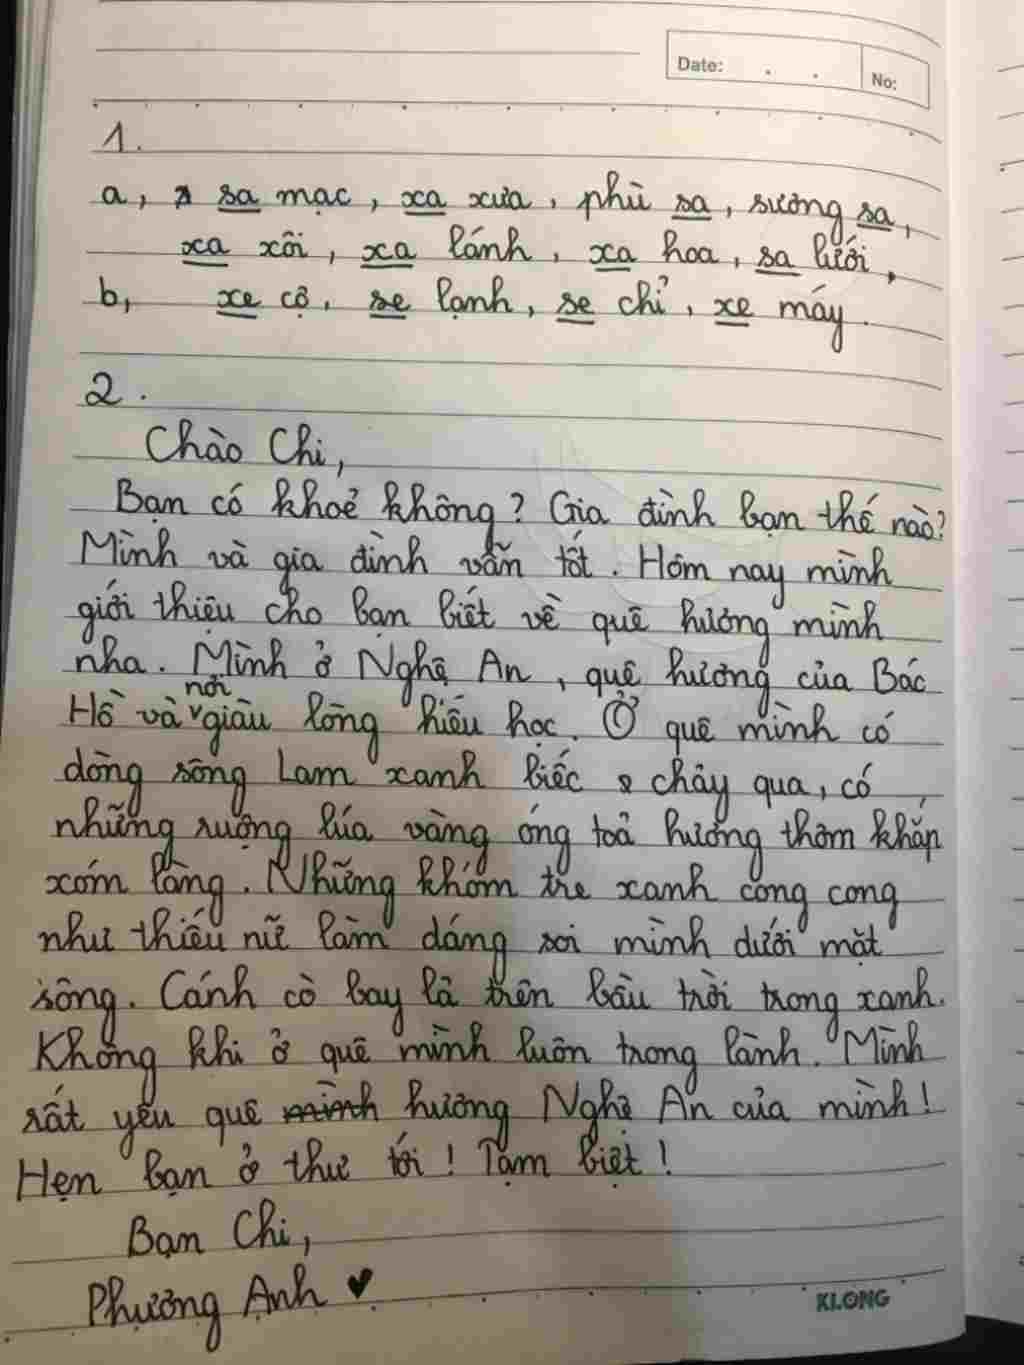 Date: . . No:
1.
a, sa mạc, xa xưa, phù sa, sương sa,
xa xôi, xa lánh, xa hoa, sa lưới,
b, xe cộ, se lạnh, se chỉ, xe máy.
2.
Chào Chi,
Bạn có khoẻ không? Gia đình bạn thế nào?
Mình và gia đình vẫn tốt. Hôm nay mình
giới thiệu cho bạn biết về quê hương mình
nha. Mình ở Nghệ An, quê hương của Bác
Hồ và nơi giàu lòng hiếu học. Ở quê mình có
dòng sông Lam xanh biếc chảy qua, có
những ruộng lúa vàng óng toả hương thơm khắp
xóm làng. Những khóm tre xanh cong cong
như thiếu nữ làm dáng soi mình dưới mặt
sông. Cánh cò bay lả trên bầu trời trong xanh.
Không khi ở quê mình luôn trong lành. Mình
rất yêu quê mình hương Nghệ An của mình!
Hẹn bạn ở thư tới! Tạm biệt!
Bạn Chi,
Phương Anh ♥
KLONG